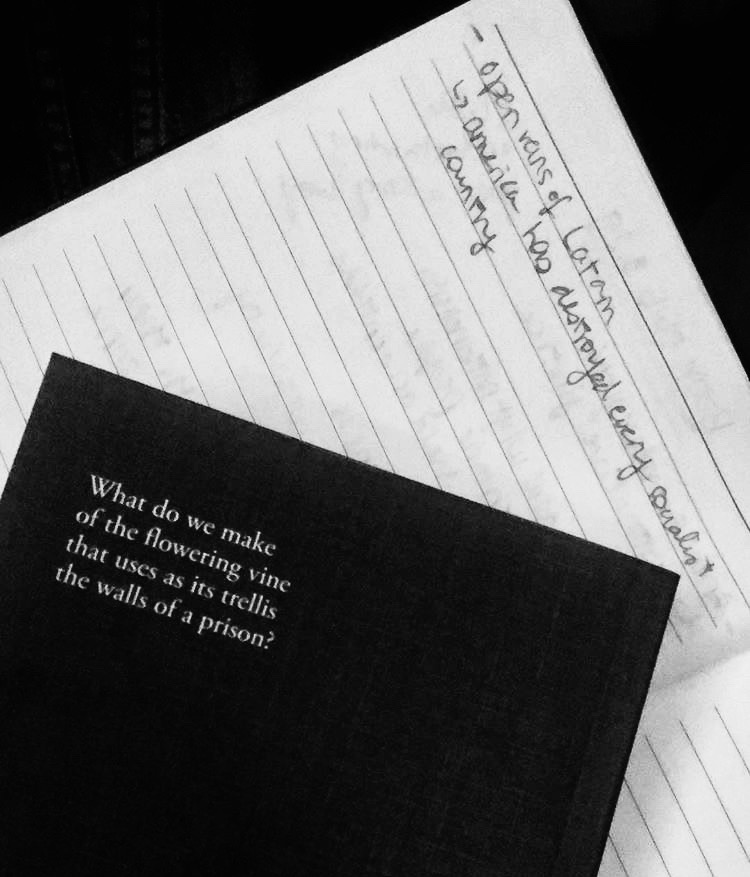 - open veins of Latam
↳ america has destroyed every socialist
country
What do we make
of the flowering vine
that uses as its trellis
the walls of a prison?